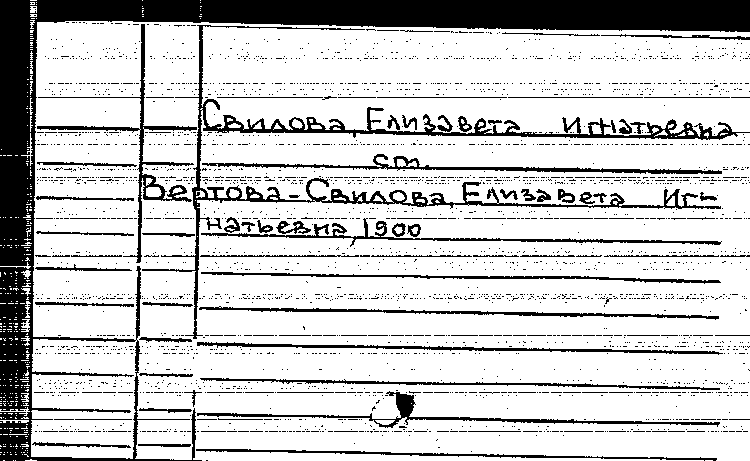 Свилова, Елизавета Игнатьевна
ст.
Вертова-Свилова, Елизавета Иг-
натьевна, 1900